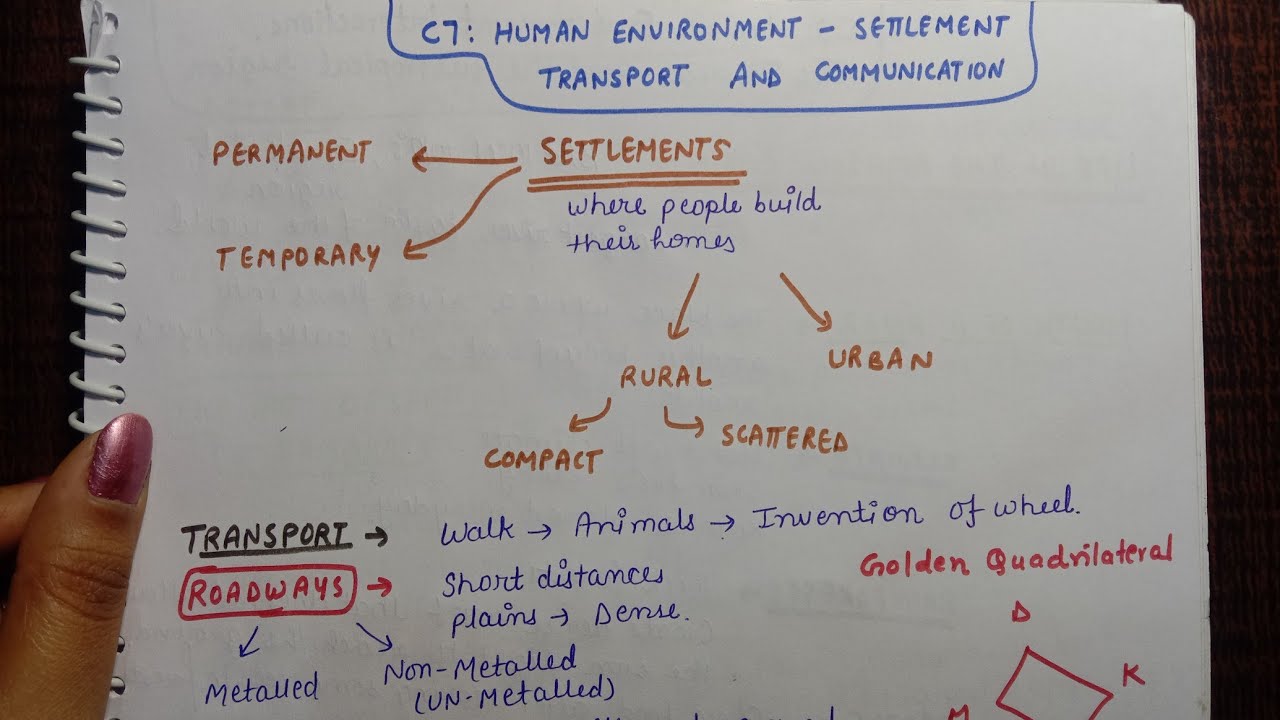 C7: HUMAN ENVIRONMENT - SETTLEMENT
TRANSPORT AND COMMUNICATION
PERMANENT
SETTLEMENTS
where people build
their homes
TEMPORARY
RURAL
URBAN
COMPACT
SCATTERED
TRANSPORT → Walk → Animals → Invention of wheel.
ROADWAYS → Short distances
plains → Dense.
Golden Quadrilateral
D
K
M
Metalled
Non-Metalled
(UN-Metalled)